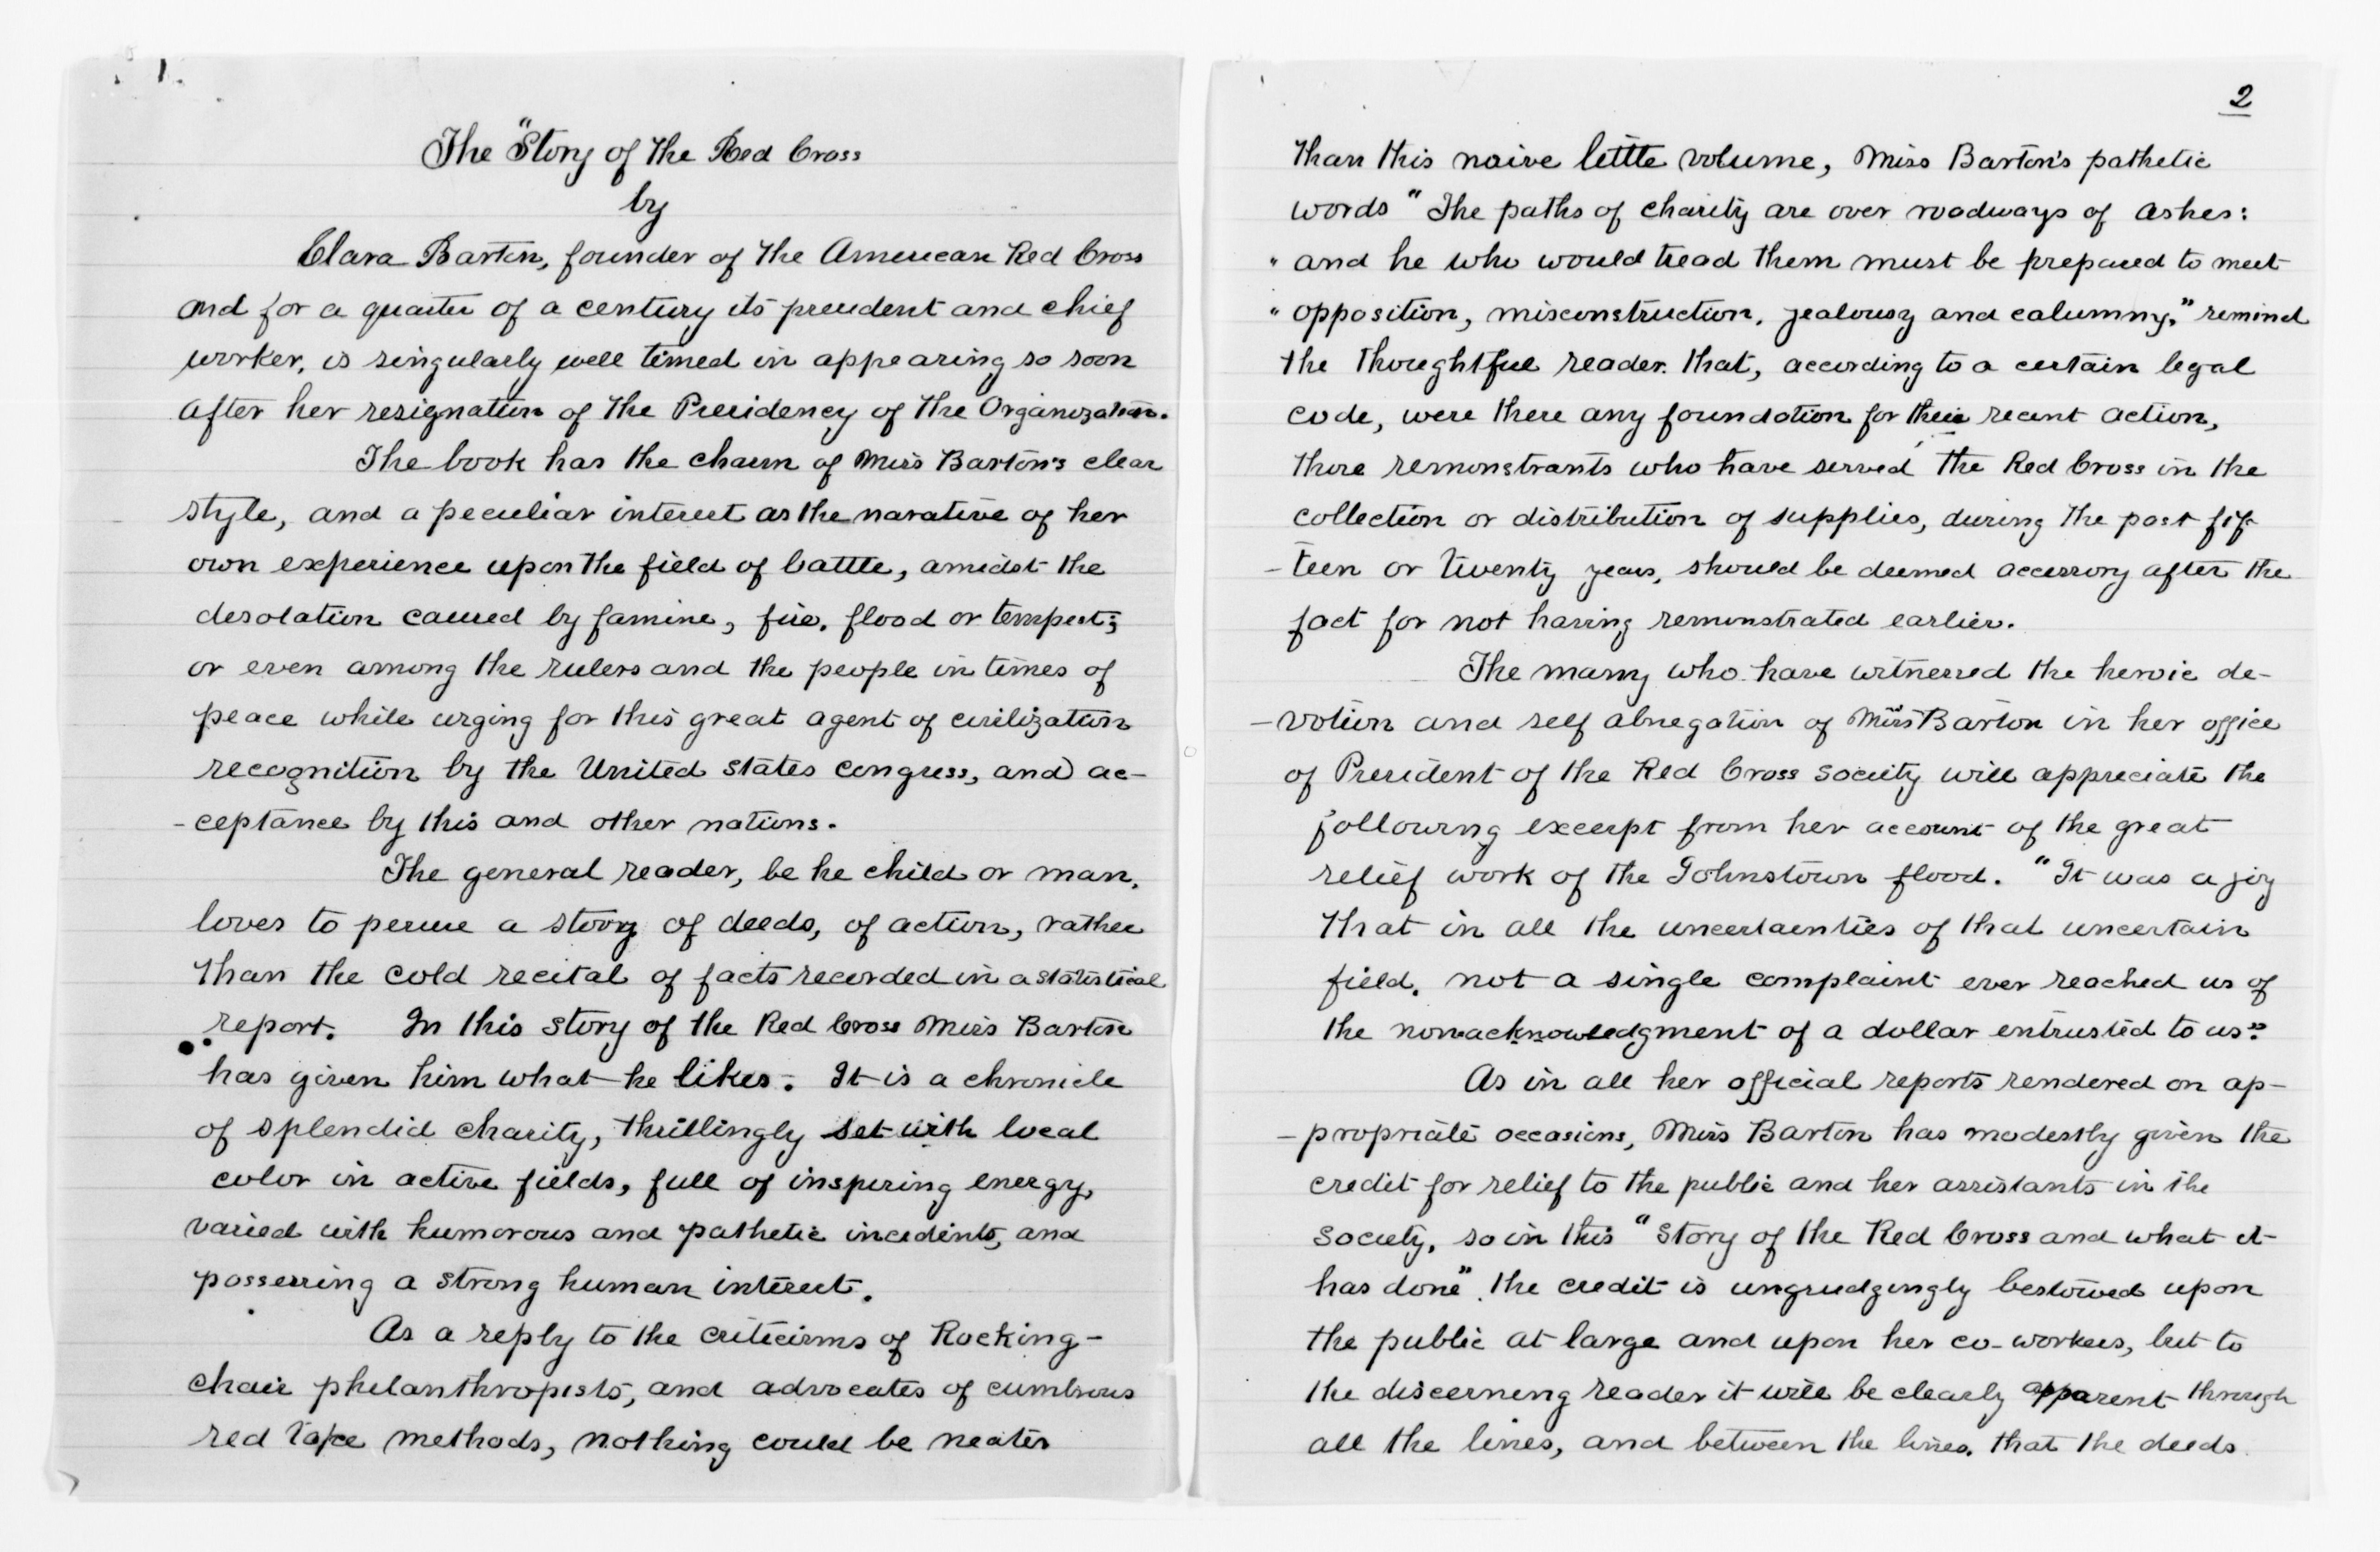 1.
The "Story of the Red Cross
by
Clara Barton, founder of the American Red Cross
and for a quarter of a century its president and chief
worker, is singularly well timed in appearing so soon
after her resignation of the Presidency of the Organization.
The book has the charm of Miss Barton's clear
style, and a peculiar interest as the narative of her
own experience upon the field of battle, amidst the
desolation caused by famine, fire, flood or tempest;
or even among the rulers and the people in times of
peace while urging for this great agent of civilization
recognition by the United States Congress, and ac-
-ceptance by this and other nations.
The general reader, be he child or man,
loves to peruse a story of deeds, of action, rather
than the cold recital of facts recorded in a statistical
report. In this story of the Red Cross Miss Barton
has given him what he likes. It is a chronicle
of splendid charity, thrillingly set with local
color in active fields, full of inspiring energy,
varied with humorous and pathetic incidents, and
possessing a strong human interest.
As a reply to the criticisms of Rocking-
chair philanthropists, and advocates of cumbrous
red tape methods, nothing could be neater
2
than this naive little volume, Miss Barton's pathetic
words "The paths of charity are over roadways of ashes:
" and he who would tread them must be prepared to meet
" opposition, misconstruction, jealousy and calumny," remind
the thoughtful reader that, according to a certain legal
code, were there any foundation for their recent action,
those remonstrants who have served the Red Cross in the
collection or distribution of supplies, during the past fif-
-teen or twenty years, should be deemed accessory after the
fact for not having remonstrated earlier.
The many who have witnessed the heroic de-
-votion and self abnegation of Miss Barton in her office
of President of the Red Cross Society will appreciate the
following excerpt from her account of the great
relief work of the Johnstown flood. "It was a joy
that in all the uncertainties of that uncertain
field, not a single complaint ever reached us of
the nonacknowledgment of a dollar entrusted to us."
As in all her official reports rendered on ap-
-propriate occasions, Miss Barton has modestly given the
credit for relief to the public and her assistants in the
Society, so in this "Story of the Red Cross and what it
has done" the credit is ungrudgingly bestowed upon
the public at large and upon her co-workers, but to
the discerning reader it will be clearly apparent through
all the lines, and between the lines, that the deeds